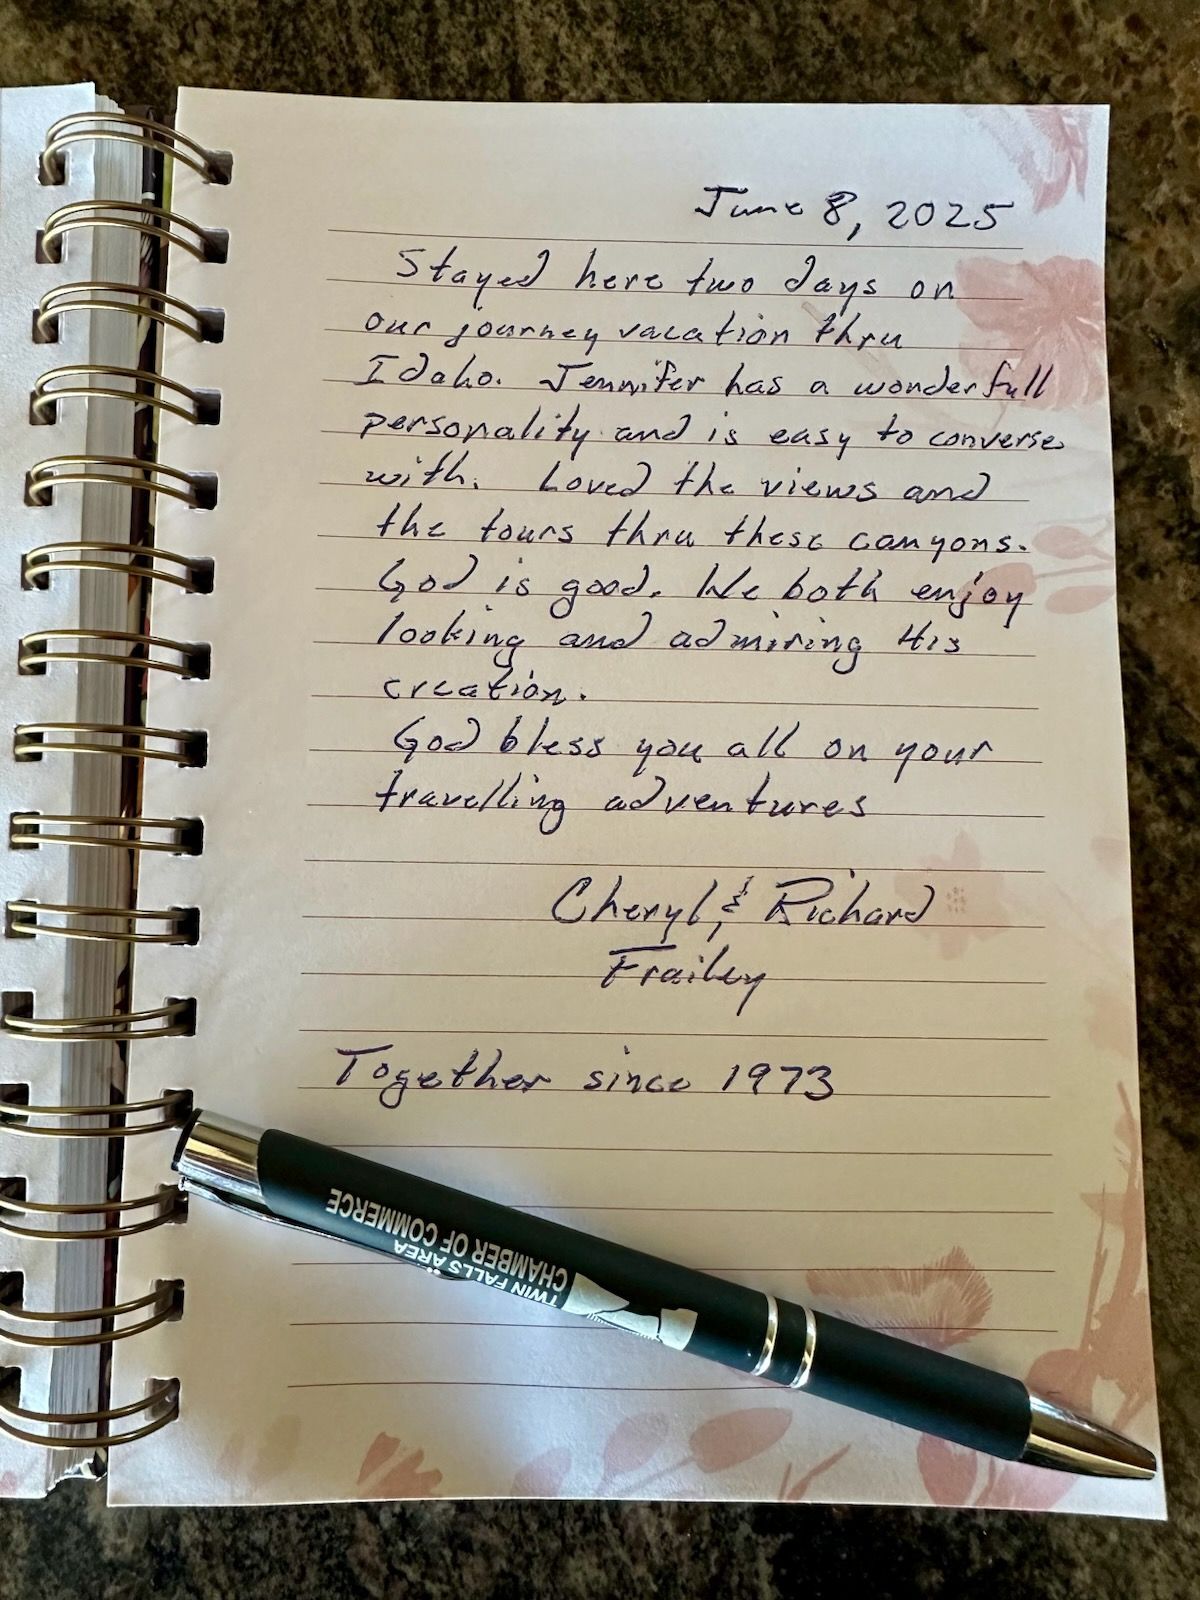 June 8, 2025
Stayed here two days on
our journey vacation thru
Idaho. Jennifer has a wonderfull
personality and is easy to converse
with. Loved the views and
the tours thru these canyons.
God is good. We both enjoy
looking and admiring His
creation.
God bless you all on your
travelling adventures
Cheryl & Richard
Frailey
Together since 1973
TWIN FALLS AREA
CHAMBER OF COMMERCE